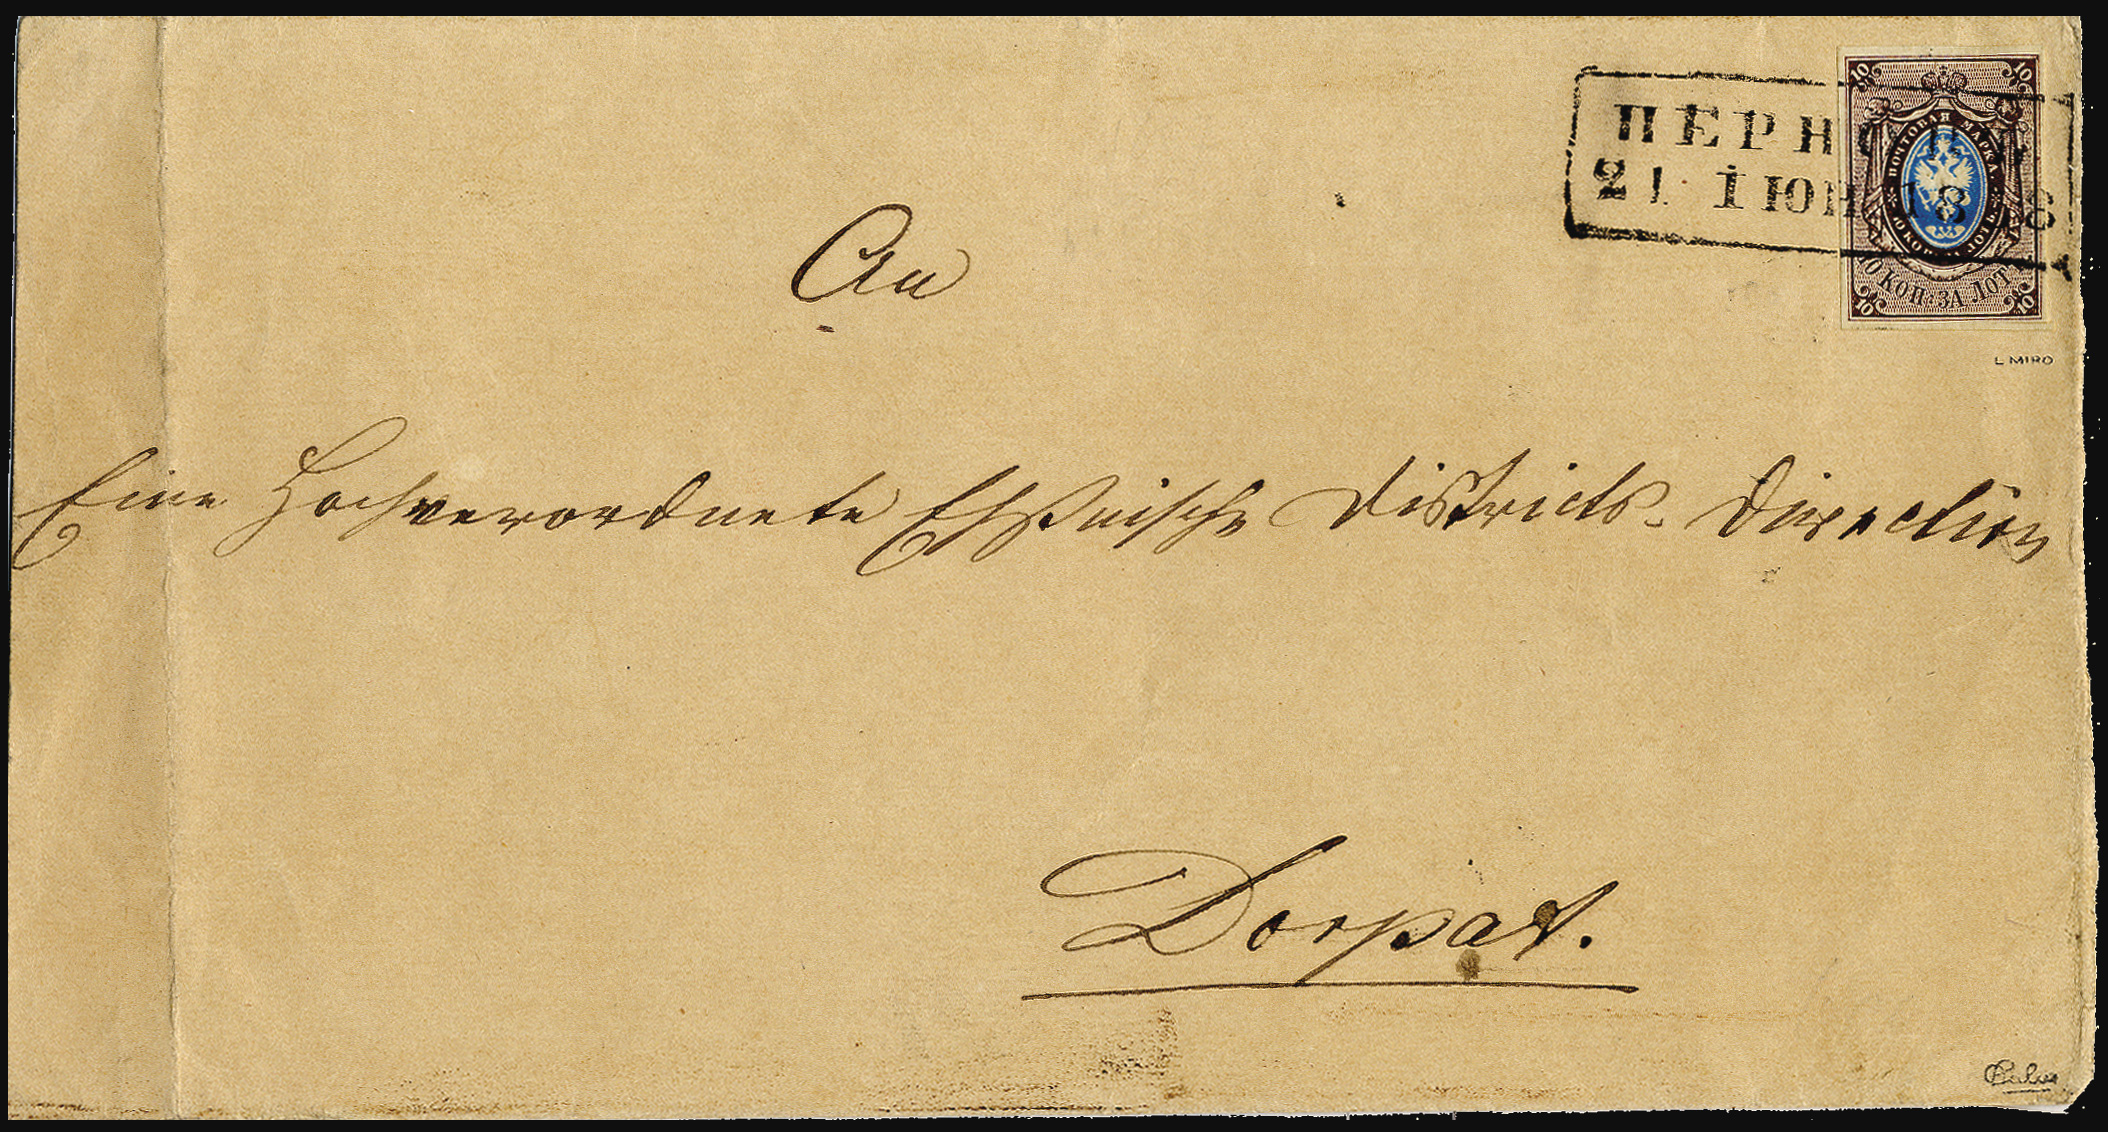 ПЕРНОВЪ
21 IЮН 1858
10 10
ПОЧТОВАЯ МАРКА
10 КОП. ЛОТЪ
10 КОП: ЗА ЛОТ
10 10
L MIRO
An
Eine Hochverordnete Ehstnische Districts-Direction
Dorpat.